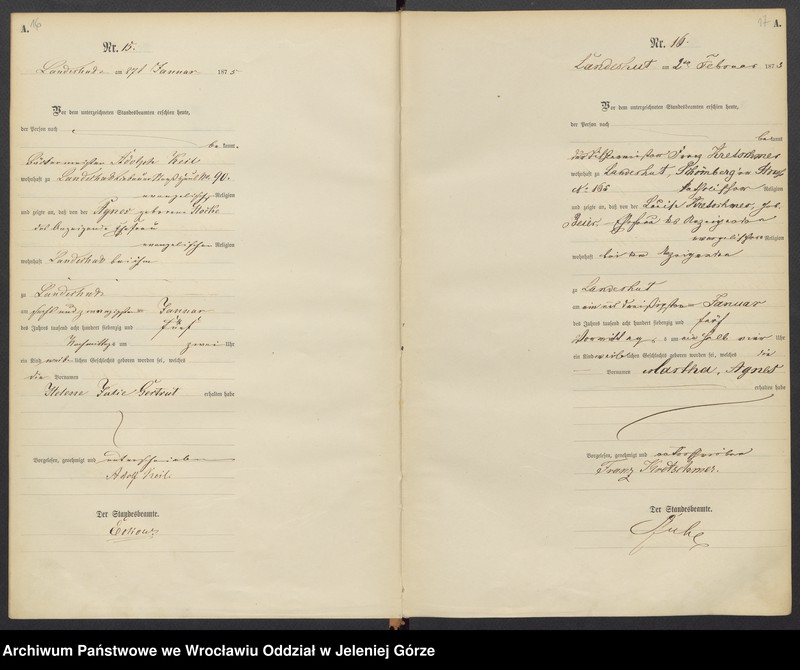 A. 16
Nr. 15.
Landeshut am 187
Januar 1875
Vor dem unterzeichneten Standesbeamten erschien heute,
der Person nach
bekannt,
Adolph Keil
wohnhaft zu Landeshut No. 90.
evangelischer Religion
und zeigte an, daß von der Agnes geborene
des Anzeigenden Ehefrau
evangelischer Religion
wohnhaft Landeshut bei ihm
zu Landeshut
am sechs und zwanzigsten Januar
des Jahres tausend acht hundert siebenzig und fünf
Nachmittags um zwei Uhr
ein Kind weiblichen Geschlechts geboren worden sei, welches
die Vornamen
Helene Julie Gertrut erhalten habe
Vorgelesen, genehmigt und unterschrieben
Adolf Keil
Der Standesbeamte.
17 A.
Nr. 16.
Landeshut am 2ten Februar 1875
Vor dem unterzeichneten Standesbeamten erschien heute,
der Person nach
bekannt
Franz Kretschmer
wohnhaft zu Landeshut, Schömberger Straße
No 166 katholischer Religion
und zeigte an, daß von der Louise Kretschmer, geb.
Beier, Ehefrau des Anzeigenden
evangelischer Religion
wohnhaft bei dem Anzeigenden
zu Landeshut
am ein und dreißigsten Januar
des Jahres tausend acht hundert siebenzig und fünf
Vormittags um ein halb vier Uhr
ein Kind weiblichen Geschlechts geboren worden sei, welches die
Vornamen Martha, Agnes
erhalten habe
Vorgelesen, genehmigt und unterschrieben
Franz Kretschmer.
Der Standesbeamte.
Archiwum Państwowe we Wrocławiu Oddział w Jeleniej Górze